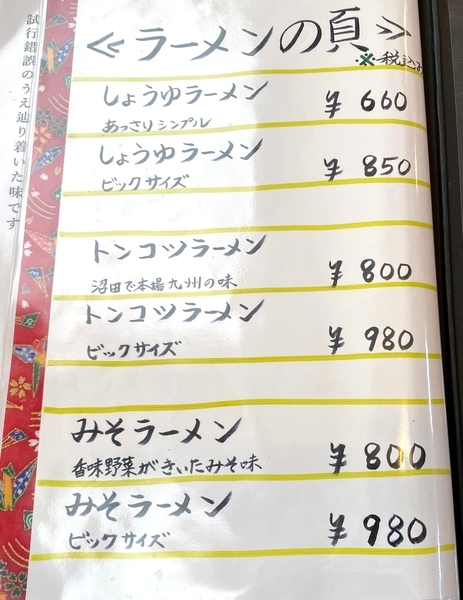 ≪ラーメンの頁≫
※税込み
しょうゆラーメン ¥660
あっさりシンプル
しょうゆラーメン ¥850
ビックサイズ
トンコツラーメン ¥800
沼田で本場九州の味
トンコツラーメン ¥980
ビックサイズ
みそラーメン ¥800
香味野菜がきいたみそ味
みそラーメン ¥980
ビックサイズ
試行錯誤のうえ辿り着いた味です